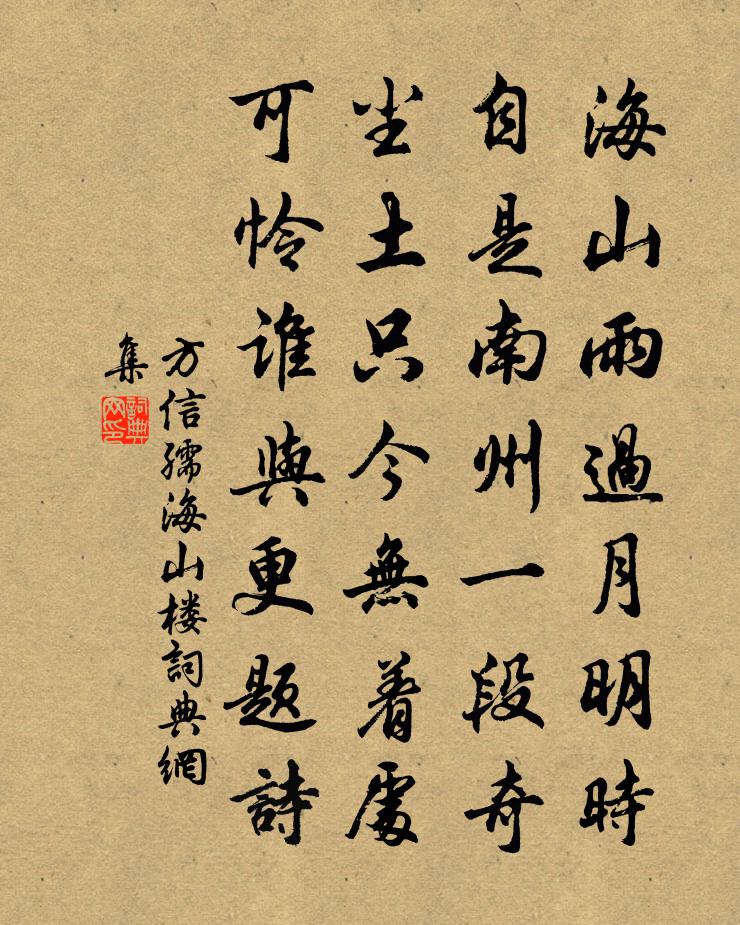 海山雨過月明時
自是南州一段奇
尘土只今無着處
可怜誰與更题詩
方信孺海山楼詞典網
集
詞典
网印